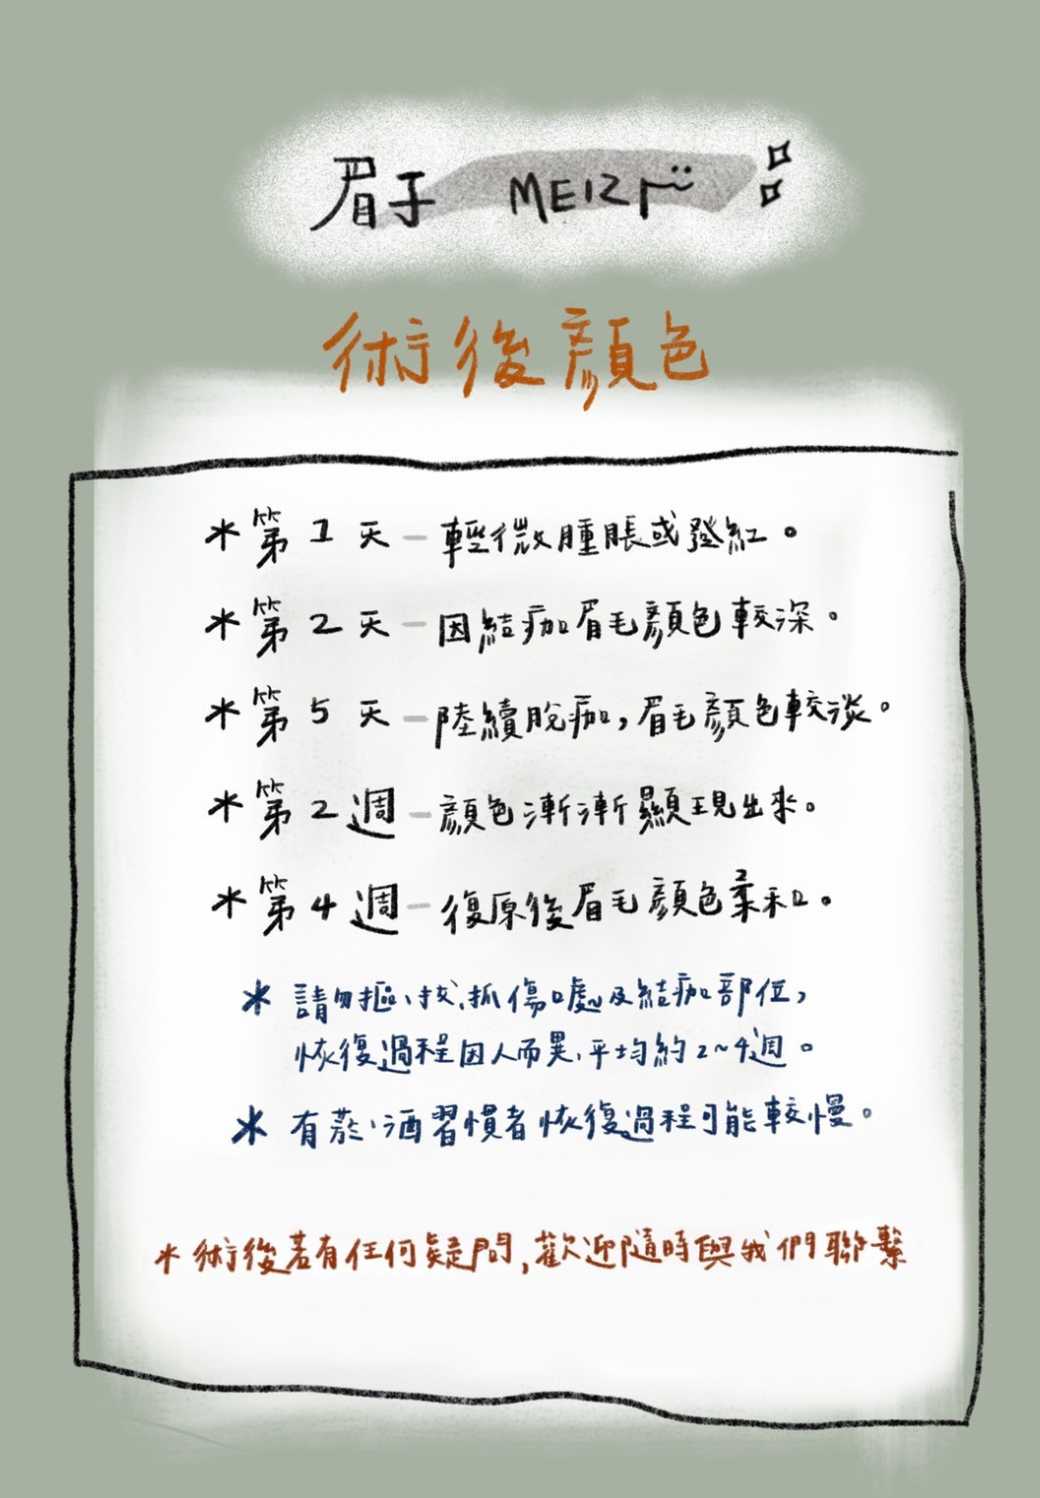 眉子 MEIZI
術後顏色
＊第1天－輕微腫脹或發紅。
＊第2天－因結痂眉毛顏色較深。
＊第5天－陸續脫痂，眉毛顏色較淡。
＊第2週－顏色漸漸顯現出來。
＊第4週－復原後眉毛顏色柔和。
＊請勿摳、抆、抓傷口處及結痂部位，
恢復過程因人而異，平均約2~4週。
＊有菸、酒習慣者恢復過程可能較慢。
＊術後若有任何疑問，歡迎隨時與我們聯繫